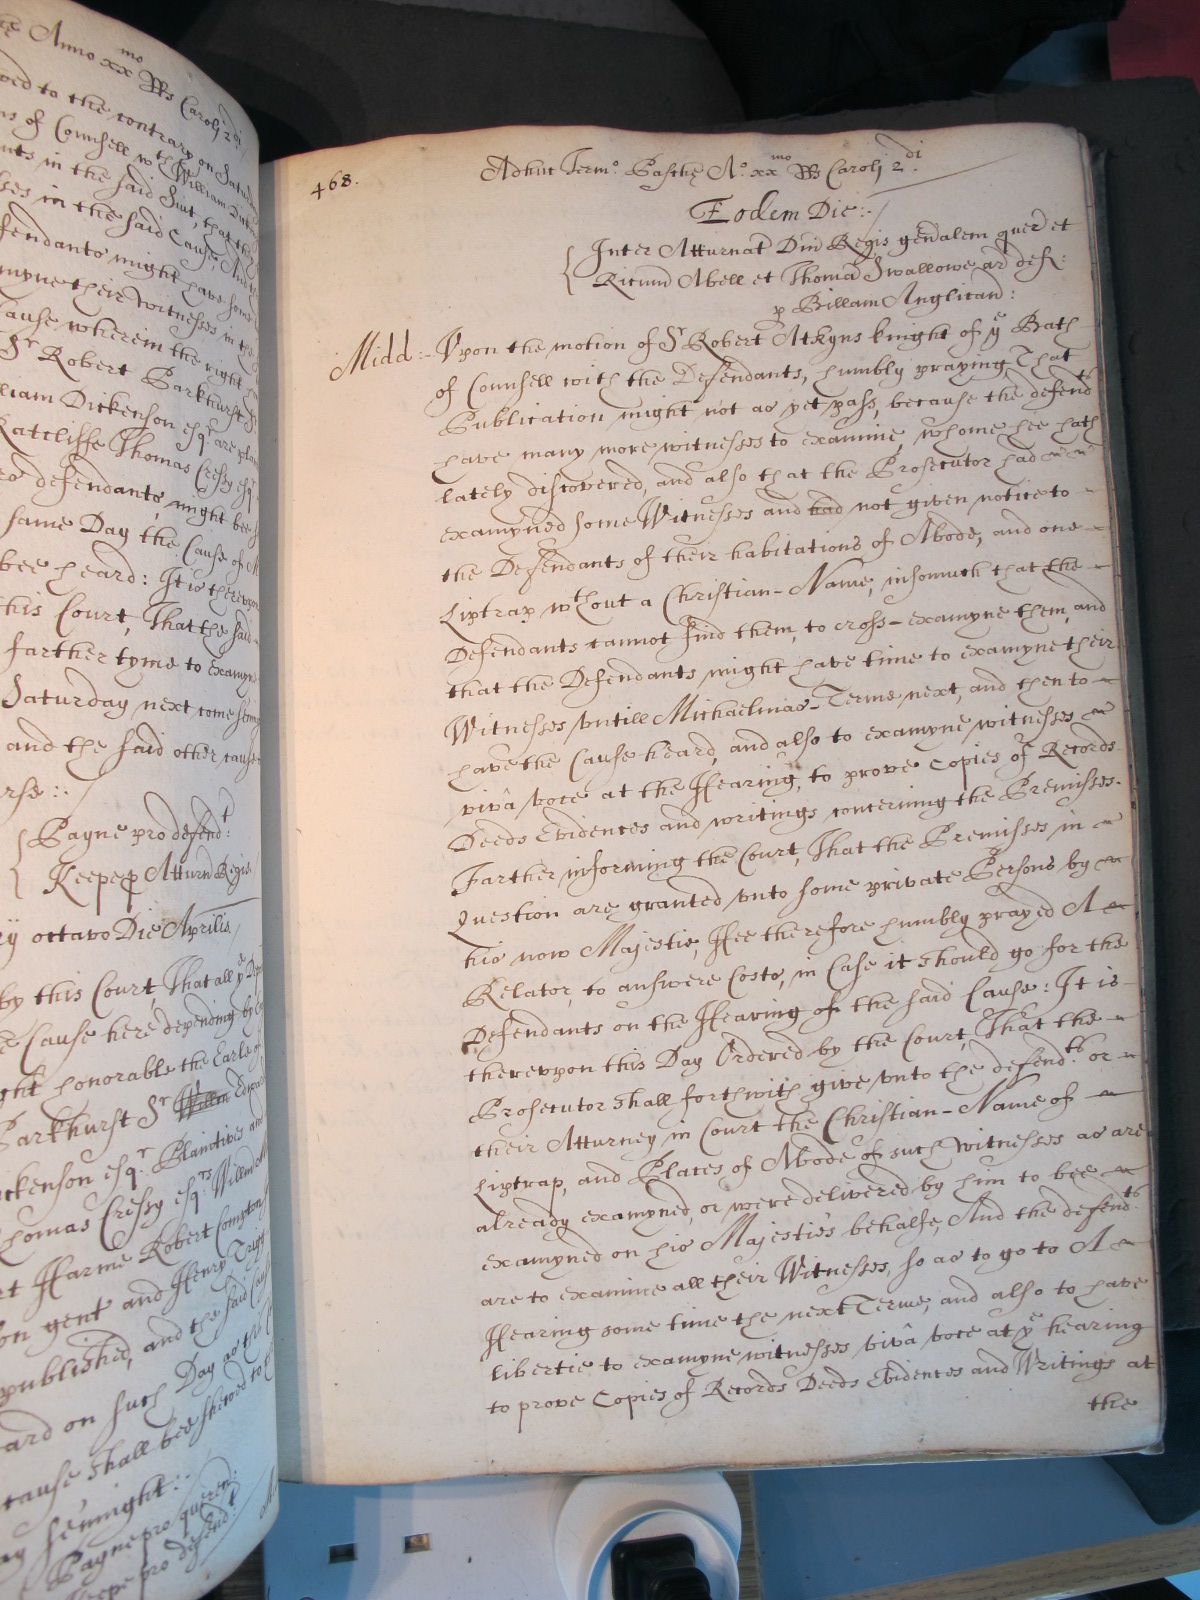 te Anno xx mo RRs Caroli 2 di
ved to the contrary on Saturd
ns of Counsell wth William Dick
nts in the said Suit, that the
ses in the said Cause, And
fendants might have some
myne their witnesses in the
Cause wherein the right
Sr Robert Parkhurst Sr
lliam Dickenson esqr are plan
Ratcliffe Thomas Cressy esqr
ro defendants, might bee
same Day the Cause of
bee heard: It is therevpon
this Court, That the said
farther tyme to examyn
Saturday next come sen
and the said other cause
rse :.
Payne pro defendt:
Keepe p Atturn Regis
ry octavo Die Aprilis
by this Court, That all ye Dep
e Cause here depending by
ght honorable the Earle of
Parkhurst Sr Willm Edward
ckenson esqr. Plaintives and
homas Cressy esqrs Willm
rt Harme Robert Compton
on gent and Henry Trigg
published, and the said Cause
ard on such Day as the
cause shall bee shewed to the
ay sennight :.
Payne pro queren:
Keepe pro defendt
468.
Adhuc Termo. Paschę Ao. xx mo RRs Caroli 2 di.
Eodem Die :-
Inter Atturnat Dni Regis genalem quer et
Ricum Abell et Thomā Swallowe ar def:
p Billam Anglican :
Midd :- Vpon the motion of Sr Robert Atkyns knight of ye Bath
of Counsell with the Defendants, humbly praying, That
Publication might not as yet pass, because the defendts
have many more witnesses to examine, whome hee hath
lately discovered, and also that the Prosecutor had
examyned some Witnesses and had not given notice to
the Defendants of their habitations of Abode, and one
Liptrap wthout a Christian-Name, insomuch that the
Defendants cannot find them, to cross-examyne them, and
that the Defendants might have time to examyne their
Witnesses vntill Michaelmas-Terme next, and then to
have the Cause heard, and also to examyne witnesses
vivâ voce at the Hearing, to prove Copies of Records
Deeds Evidences and writings concerning the Premisses.
Farther informing the Court, That the Premisses in
Question are granted vnto some private Persons by
his now Majestie, Hee therefore humbly prayed A
Relator, to answere Costs, in Case it should go for the
Defendants on the Hearing of the said Cause: It is
therevpon this Day Ordered by the Court, That the
Prosecutor shall forthwith give vnto the defendts. or
their Atturney in Court the Christian-Name of
Liptrap, and Places of Abode of such Witnesses as are
already examyned, or were delivered by him to bee
examyned on his Majesties behalfe, And the defendts.
are to examine all their Witnesses, so as to go to A
Hearing some time the next Terme, and also to have
libertie to examyne witnesses vivâ voce at ye hearing
to prove Copies of Records Deeds Evidences and Writings at
the